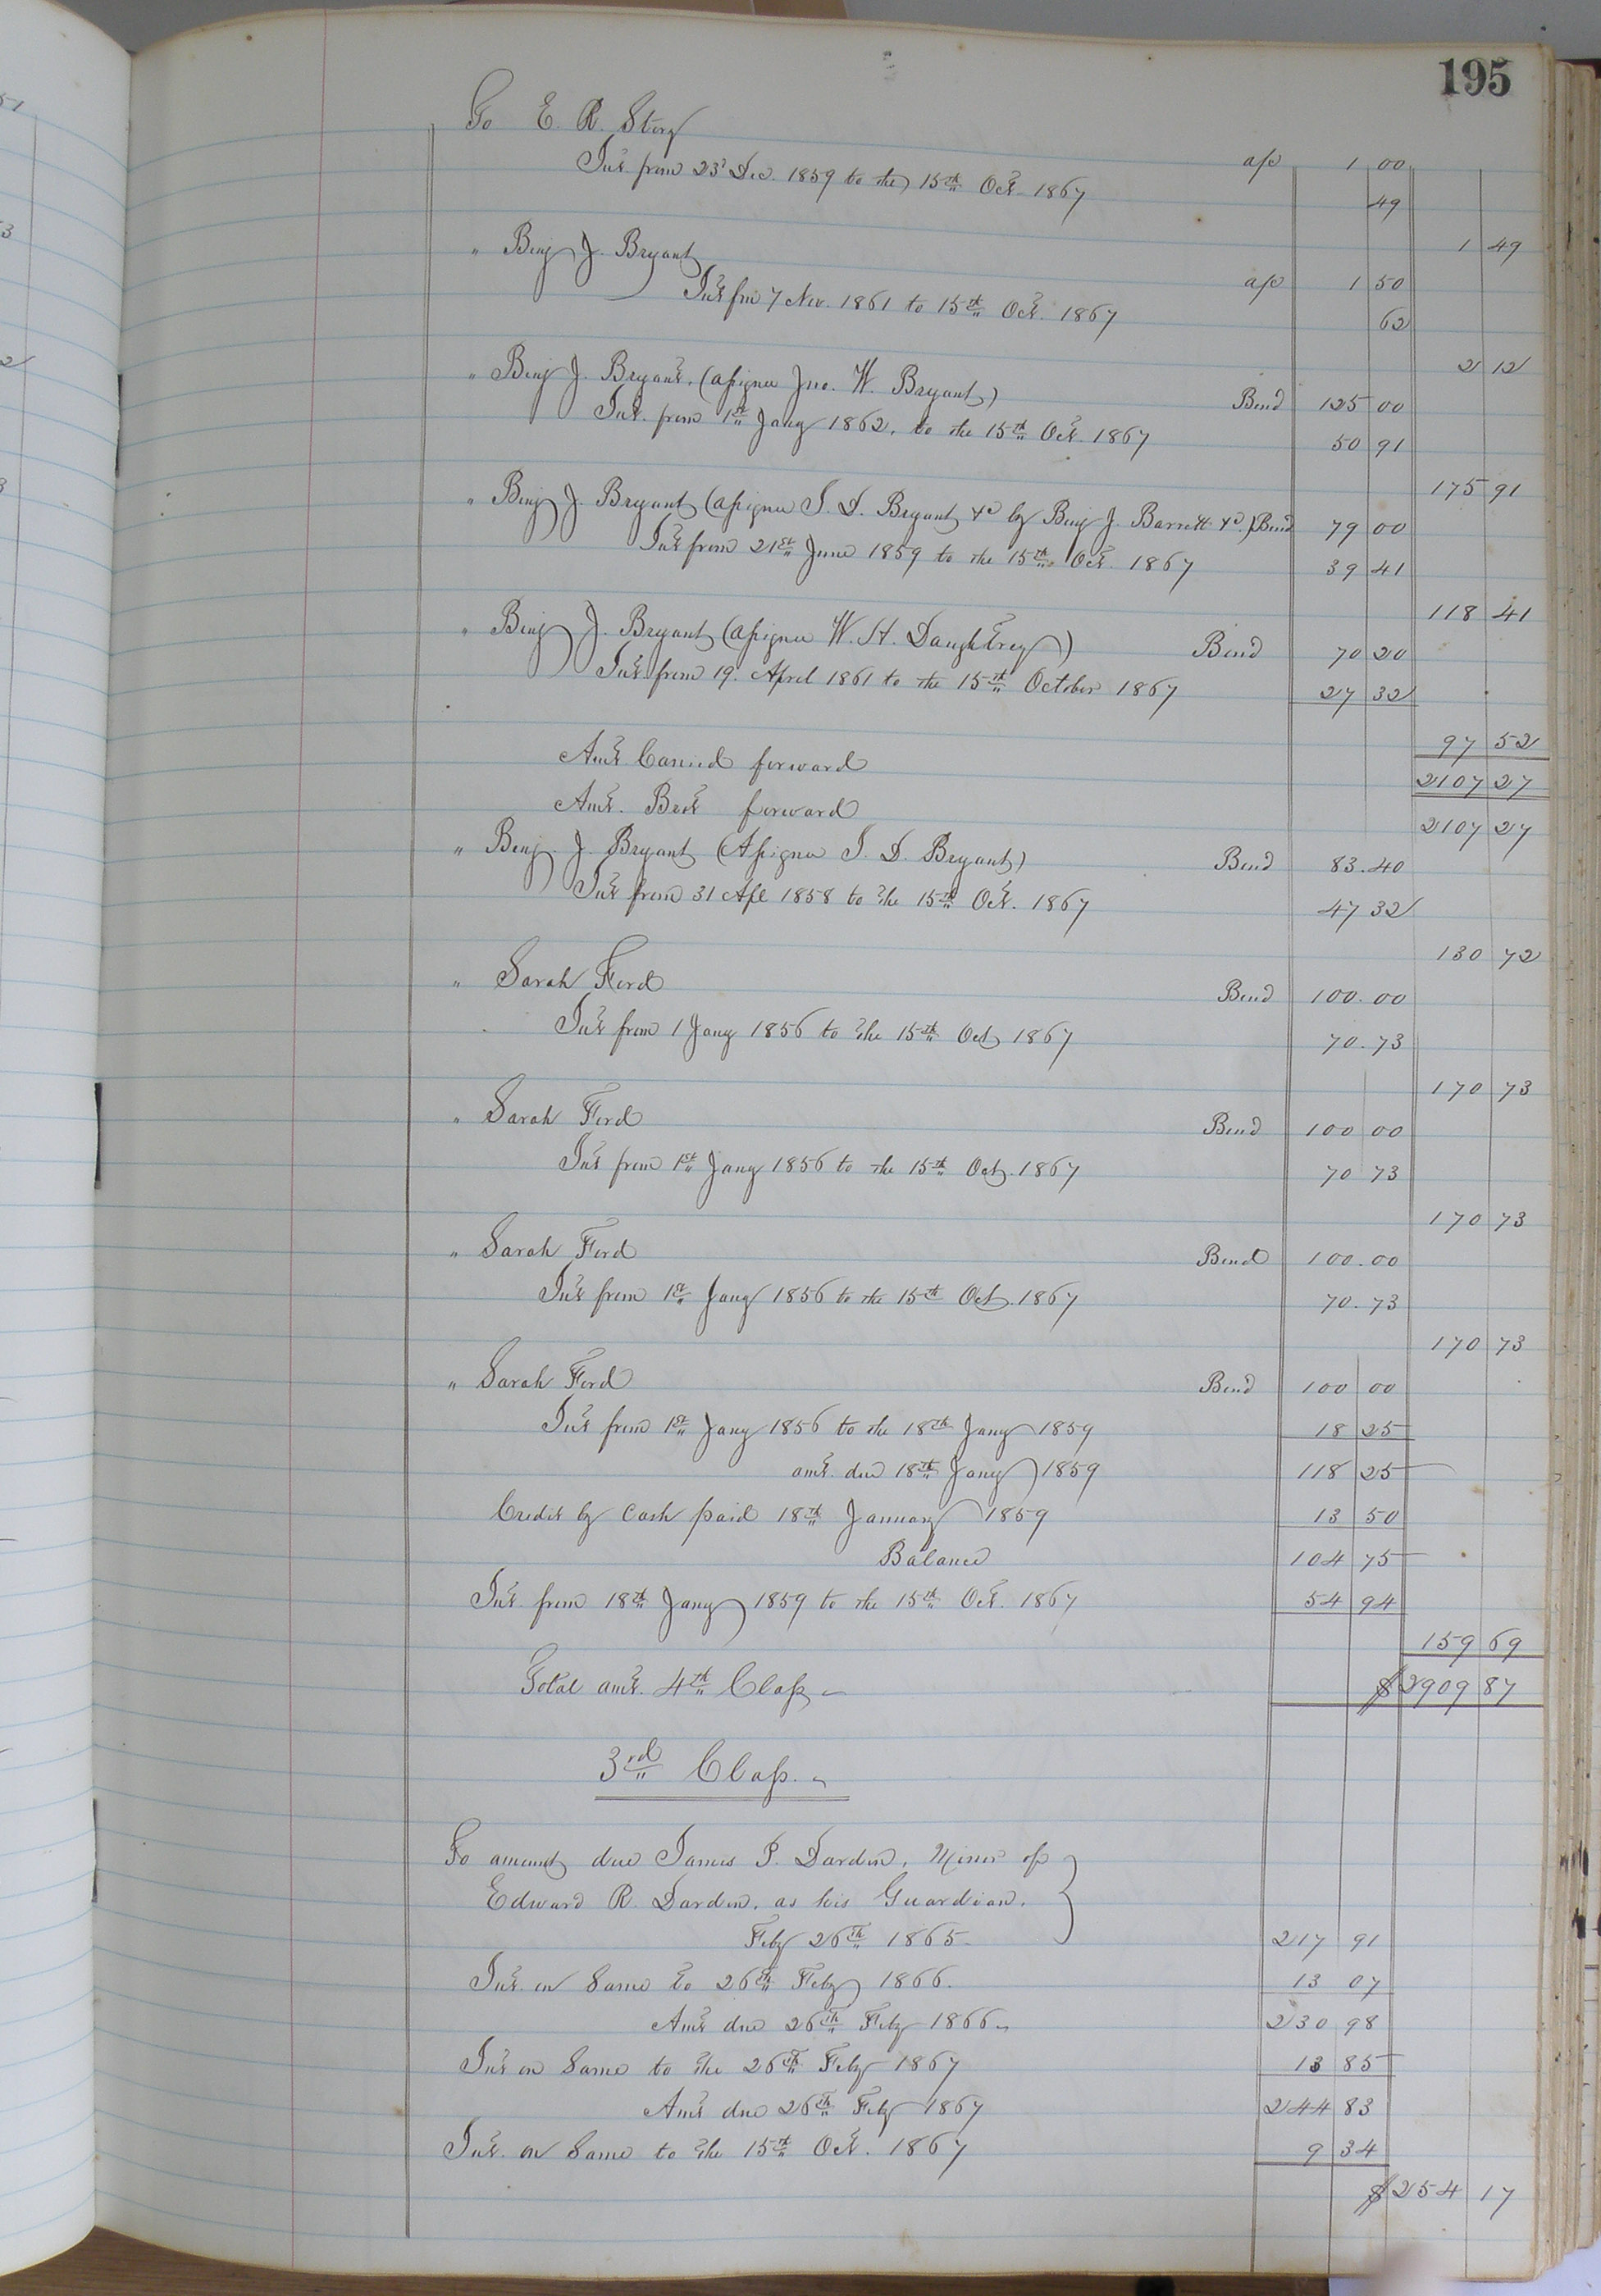 195
To E. R. Story a/c 1 00
Int from 23d Dec. 1859 to the 15th Oct. 1867 49
1 49
" Benj J. Bryant a/c 1 50
Int fm 7 Nov. 1861 to 15th Oct. 1867 62
2 12
" Benj J. Bryant. (assignee Jno. W. Bryant) Bond 125 00
Int. from 1st Jany 1862, to the 15th Oct. 1867 50 91
175 91
" Benj J. Bryant (assignee S. D. Bryant &c by Benj J. Barrett &c.) Bond 79 00
Int from 21st June 1859 to the 15th Oct. 1867 39 41
118 41
" Benj J. Bryant (assignee W. H. Daughtrey) Bond 70 20
Int from 19. April 1861 to the 15th October 1867 27 32
97 52
Amt Carried forward 2107 27
Amt. Brot forward 2107 27
" Benj. J. Bryant (Assignee S. D. Bryant) Bond 83.40
Int from 31 Apl 1858 to the 15th Oct. 1867 47 32
130 72
" Sarah Ford Bond 100.00
Int from 1 Jany 1856 to the 15th Oct 1867 70.73
170 73
" Sarah Ford Bond 100 00
Int from 1st Jany 1856 to the 15th Oct. 1867 70 73
170 73
" Sarah Ford Bond 100.00
Int from 1st Jany 1856 to the 15th Oct. 1867 70.73
170 73
" Sarah Ford Bond 100 00
Int from 1st Jany 1856 to the 18th Jany 1859 18 25
amt. due 18th Jany 1859 118 25
Credit by Cash paid 18th January 1859 13 50
Balance 104 75
Int. from 18th Jany 1859 to the 15th Oct. 1867 54 94
159 69
Total amt. 4th Class $2909 87
3rd Class.
To amount due James P. Darden, Minor of
Edward R. Darden, as his Guardian.
Feby 26th 1865 217 91
Int. on Same to 26th Feby 1866. 13 07
Amt due 26th Feby 1866 230 98
Int on Same to the 26th Feby 1867 13 85
Amt due 26th Feby 1867 244 83
Int. on Same to the 15th Oct. 1867 9 34
$254 17